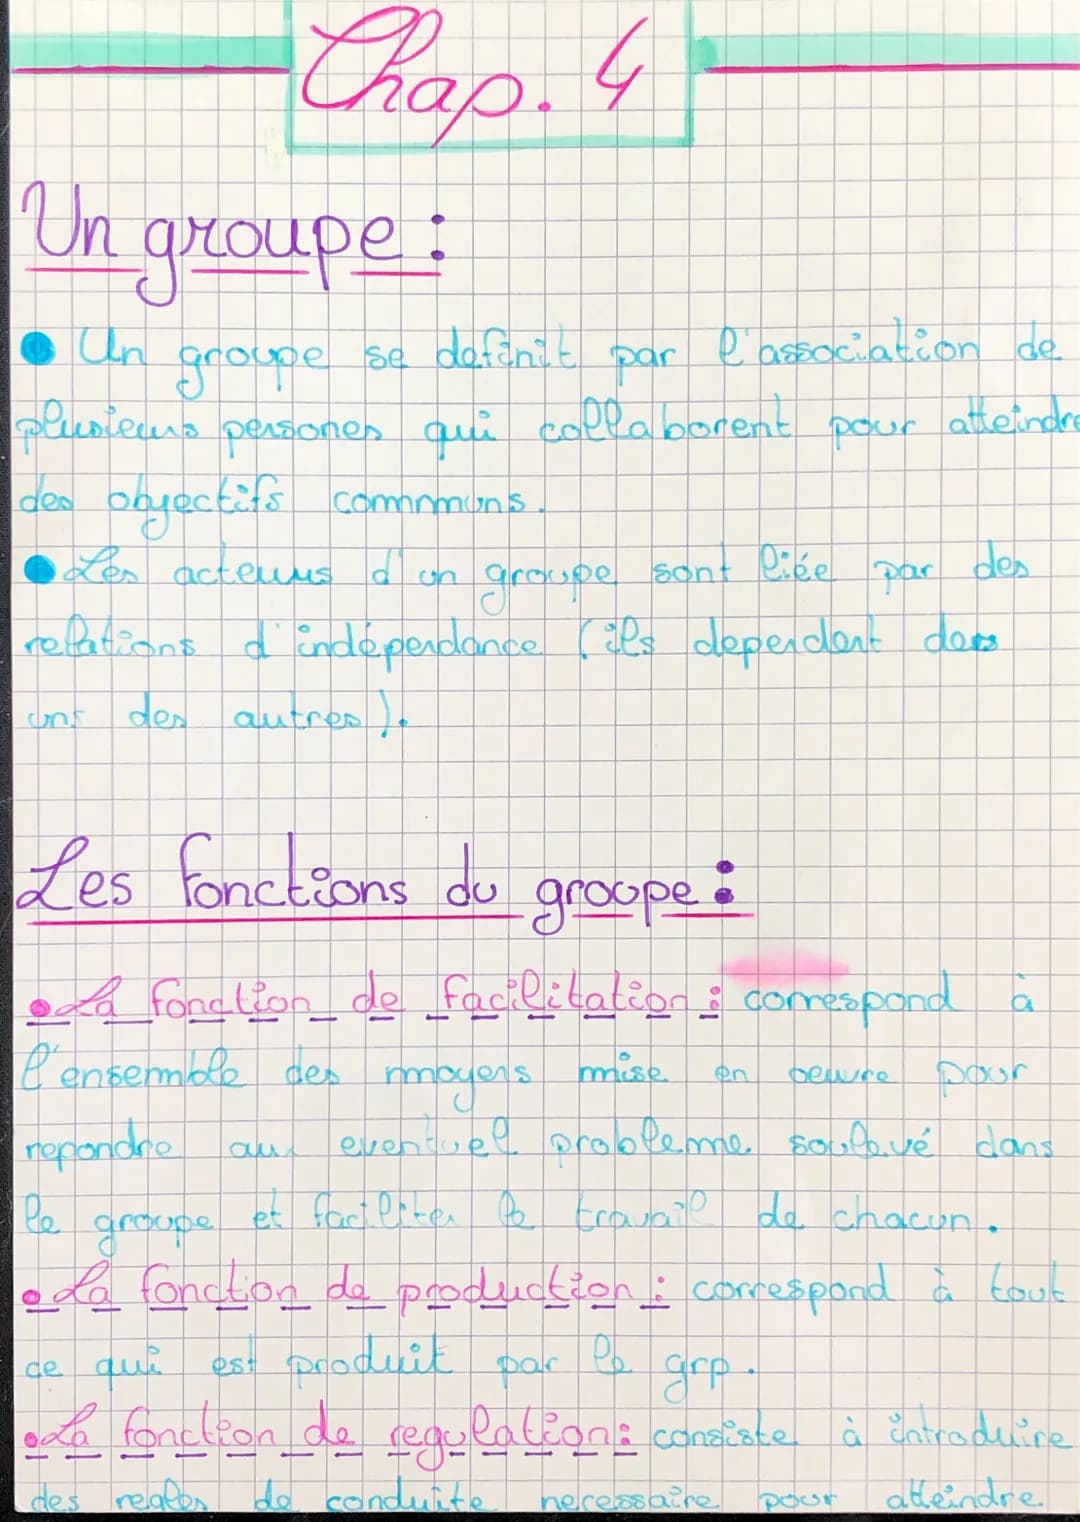 Chap. 4
Un groupe :
Un groupe se definit par l'association de
plusieurs persones qui collaborent pour atteindre
des objectifs commmuns.
Les acteurs d'un groupe sont liée par des
relations d'indépendance (ils dependent des
uns des autres).
Les fonctions du groupe :
La fonction de facilitation : correspond à
l'ensemble des moyens mise en oeuvre pour
repondre aux eventuel probleme soulevé dans
le groupe et faciliter le travail de chacun.
La fonction de production : correspond à tout
ce qui est produit par le grp.
La fonction de regulation : consiste à introduire
des regles de conduite necessaire pour atteindre